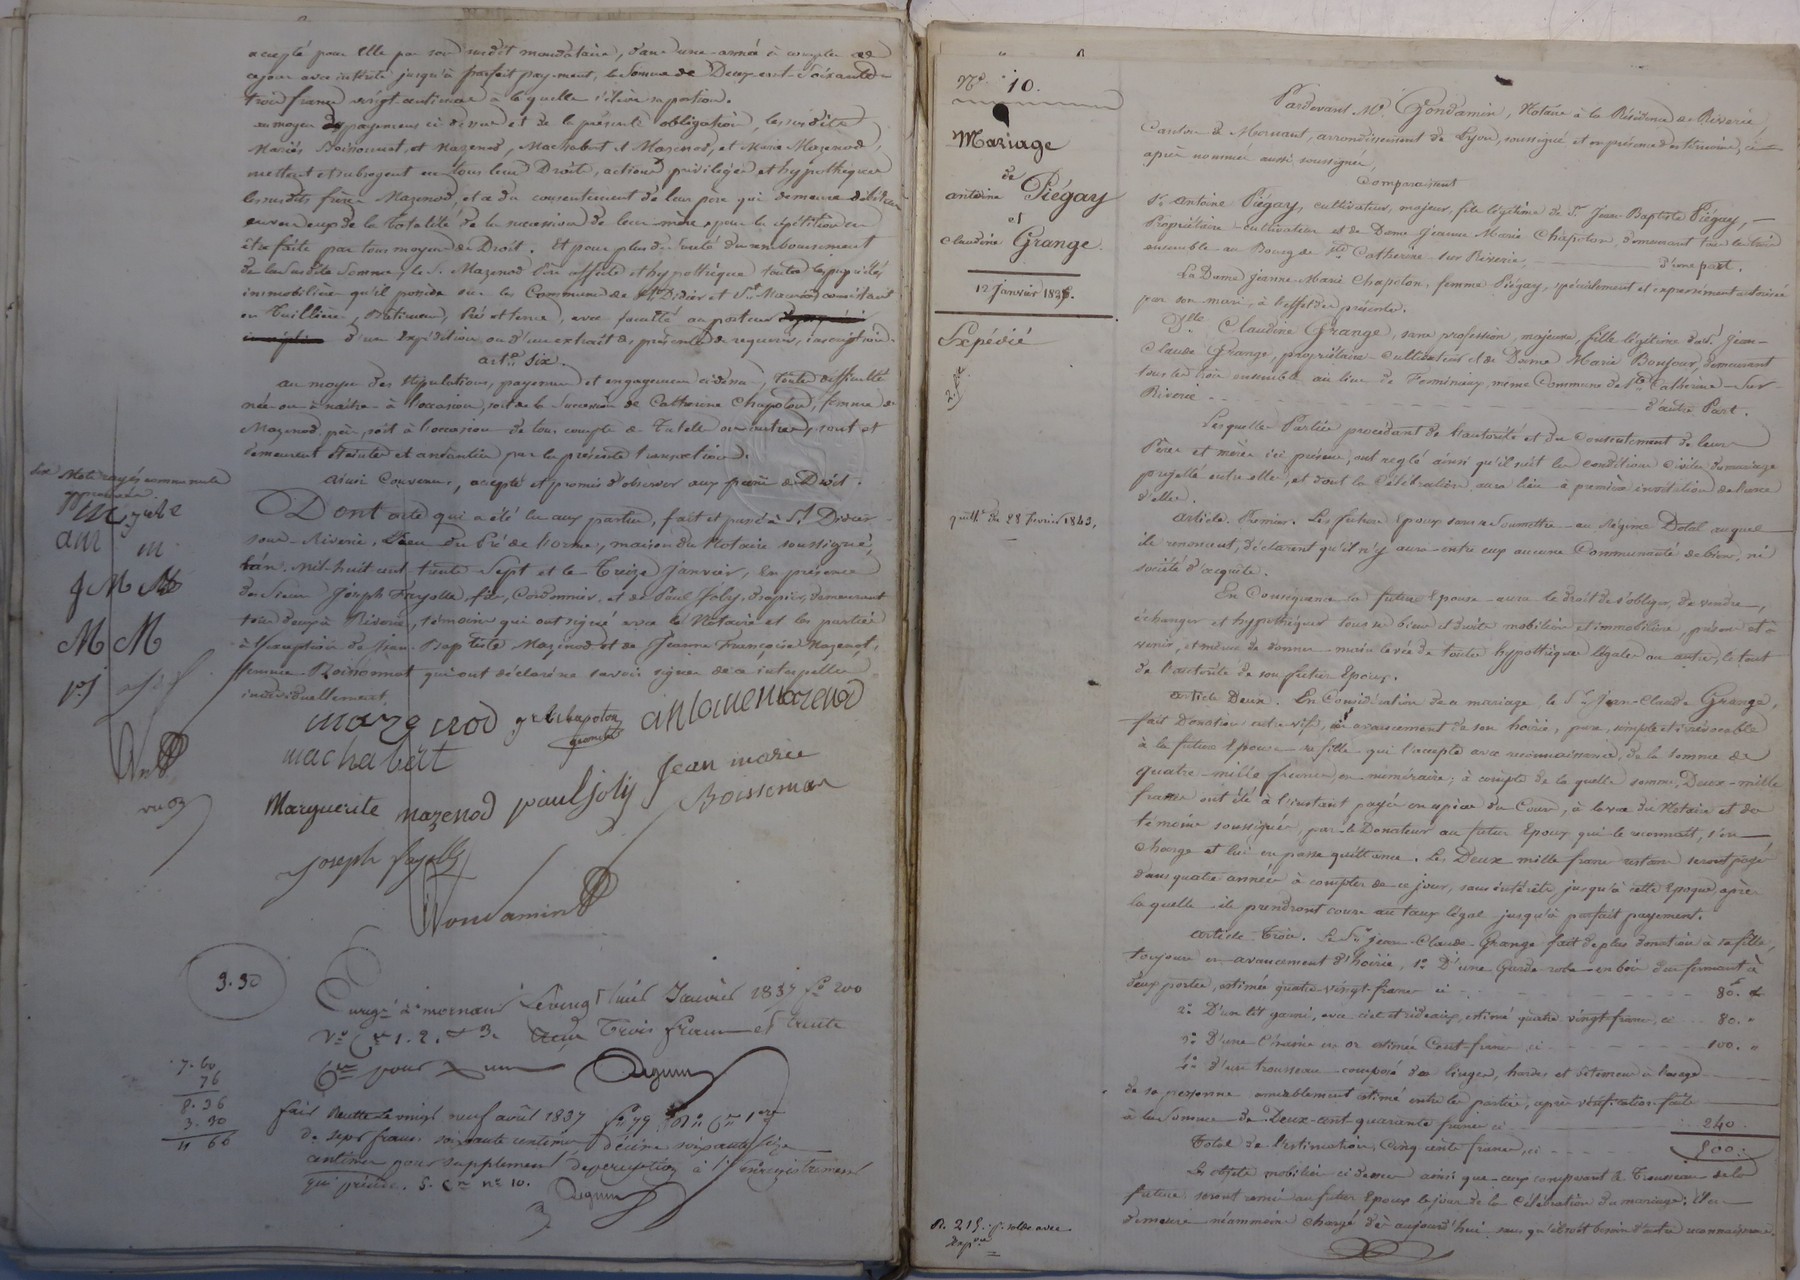 accepté pour elle par son susdit mandataire, dans une année à compter de
ce jour avec intérêts jusqu'à parfait payement, la somme de Deux cent soixante
trois francs vingt centimes à laquelle s'élève sa portion.
au moyen des payemens ci dessus et de la présente obligation, les susdits
Mariés Boissonnat, et Mazenod, Machabert et Mazenod, et Marie Mazenod,
mettent et subrogent en tous leurs Droits, actions, privilèges et hypothèques
les susdits frères Mazenod, et a du consentement de leur père qui demeure débiteur
envers eux de la totalité de la succession de leur mère, pour la répétition en
être faite par tous moyens de Droit. Et pour plus de sureté du remboursement
de la susdite somme, le S. Mazenod père affecte et hypothèque toutes les propriétés
immobilières qu'il possède sur les Communes de St Didier et St Maurice consistant
en Bâtimens, Pré et terre, avec faculté au porteur
d'une Expédition ou d'un extrait des présentes de requérir inscription.
art. Six.
au moyen des stipulations, payemens et engagemens ci dessus, toute difficulté
née ou à naître à l'occasion, soit de la succession de Catherine Chapolon, femme de
Mazenod père, soit à l'occasion de tous compte de Tutelle ou autres, sont et
demeurent éteintes et anéanties par la présente transaction.
Ainsi Convenu, accepté et promis d'observer aux peines de Droit.
Dont acte qui a été lu aux parties, fait et passé à St Didier
sous-Riverie, Lieu du Pré de l'orme, maison du Notaire soussigné,
l'an Mil huit cent trente sept et le Treize janvier, En présence
de Sieurs Joseph Fayolle fils, Cordonnier, et de Paul Joly, drapier, demeurant
tous deux à Riverie, témoins qui ont signé avec le Notaire et les parties
à l'exception de Jean-Baptiste Mazenod et de Jeanne Françoise Mazenod,
femme Boissonnat qui ont déclaré ne savoir signer de ce interpellés
individuellement.
mazenod j b chapolon antoine mazenod
géomètre
machabert
Marguerite mazenod paul joly Jean marie
Boissonnat
joseph fayolle
Gondamin
am m
JM M
M M
pj
3.30
Enregé à mornant le vingt huit Janvier 1837 fo 200
Vo Ces 1. 2. et 3. Reçu Trois francs et trente
Ces pour
7.60
76
8.36
3.30
11 66
fait recette le vingt neuf avril 1837 fo 79
de sept francs soixante centimes, décime soixante seize
centimes pour supplément de perception à l'Enregistrement
qui précède. S. Cn no 10.
No 10.
Mariage
de
antoine Piégay
et
claudine Grange.
12 Janvier 1837.
Expédié
quitt.e du 28 février 1843.
R. 215.
Pardevant Me Gondamin, Notaire à la Résidence de Riverie
Canton de Mornant, arrondissement de Lyon, soussigné et en présence des témoins ci
après nommés aussi soussignés,
Comparaissent
Sr. Antoine Piégay, cultivateur, majeur, fils légitime de Sr. Jean-Baptiste Piégay,
Propriétaire-cultivateur et de Dame Jeanne Marie Chapolon, demeurant tous les trois
ensemble au Bourg de Ste Catherine-sur-Riverie, d'une part.
La Dame jeanne Marie Chapolon, femme Piégay, spécialement et expressément autorisée
par son mari, à l'effet des présentes.
Dlle Claudine Grange, sans profession, majeure, fille légitime de Sr. Jean-
Claude Grange, propriétaire cultivateur et de Dame Marie Bonjour, demeurant
tous les trois ensemble au lieu de même Commune de Ste Catherine-sur-
Riverie d'autre Part.
Lesquelles Parties procédant de l'autorité et du Consentement de leurs
Pères et mères ici présens, ont réglé ainsi qu'il suit les conditions civiles du mariage
projetté entre elles, et dont la Célébration aura lieu à première invitation de l'une
d'elles.
Article Premier. Les futurs Epoux sans se soumettre au Régime Dotal auquel
ils renoncent, déclarent qu'il n'y aura entre eux aucune Communauté de biens, ni
société d'acquêts.
En Conséquence la future Epouse aura le droit de s'obliger, de vendre,
échanger et hypothéquer tous ses biens et droits mobiliers et immobiliers, présens et à
venir, et même de donner main levée de toutes hypothèques légales ou autres, le tout
de l'autorité de son futur Epoux.
Article Deux. En Considération de ce mariage, le Sr Jean-Claude Grange,
fait Donation entre vifs, en avancement de son hoirie, pure, simple et irrévocable
à la future Epouse sa fille qui l'accepte avec reconnaissance, de la somme de
quatre mille francs en numéraire, à compte de laquelle somme, Deux-mille
francs ont été à l'instant payés en espèces du Cours, à la vue du Notaire et des
témoins soussignés, par le Donateur au futur Epoux qui le reconnaît, s'en
charge et lui en passe quittance. Les Deux mille francs restans seront payés
dans quatre années à compter de ce jour, sans intérêts jusqu'à cette époque après
laquelle ils prendront cours au taux légal jusqu'à parfait payement.
Article Trois. Le Sr jean-Claude Grange fait de plus donation à sa fille,
toujours en avancement d'hoirie, 1o D'une Garde-robe en bois dur fermant à
deux portes, estimée quatre-vingt francs ci 80.f
2o D'un lit garni, avec ciel et rideaux, estimé quatre vingt francs, ci 80. "
3o D'une Chaîne en or estimée Cent-francs ci 100. "
4o D'un trousseau composé des linges, hardes et vêtemens à l'usage
de sa personne amiablement estimé entre les parties, après vérification faite
à la somme de Deux-cent quarante francs ci 240.
Total de l'estimation, Cinq cents francs, ci 500.
Les objets mobiliers ci dessus ainsi que ceux composant le Trousseau de la
future seront remis au futur Epoux le jour de la célébration du mariage. Il en
demeure néanmoins chargé dès aujourd'hui sans qu'il soit besoin d'autre reconnaissance.